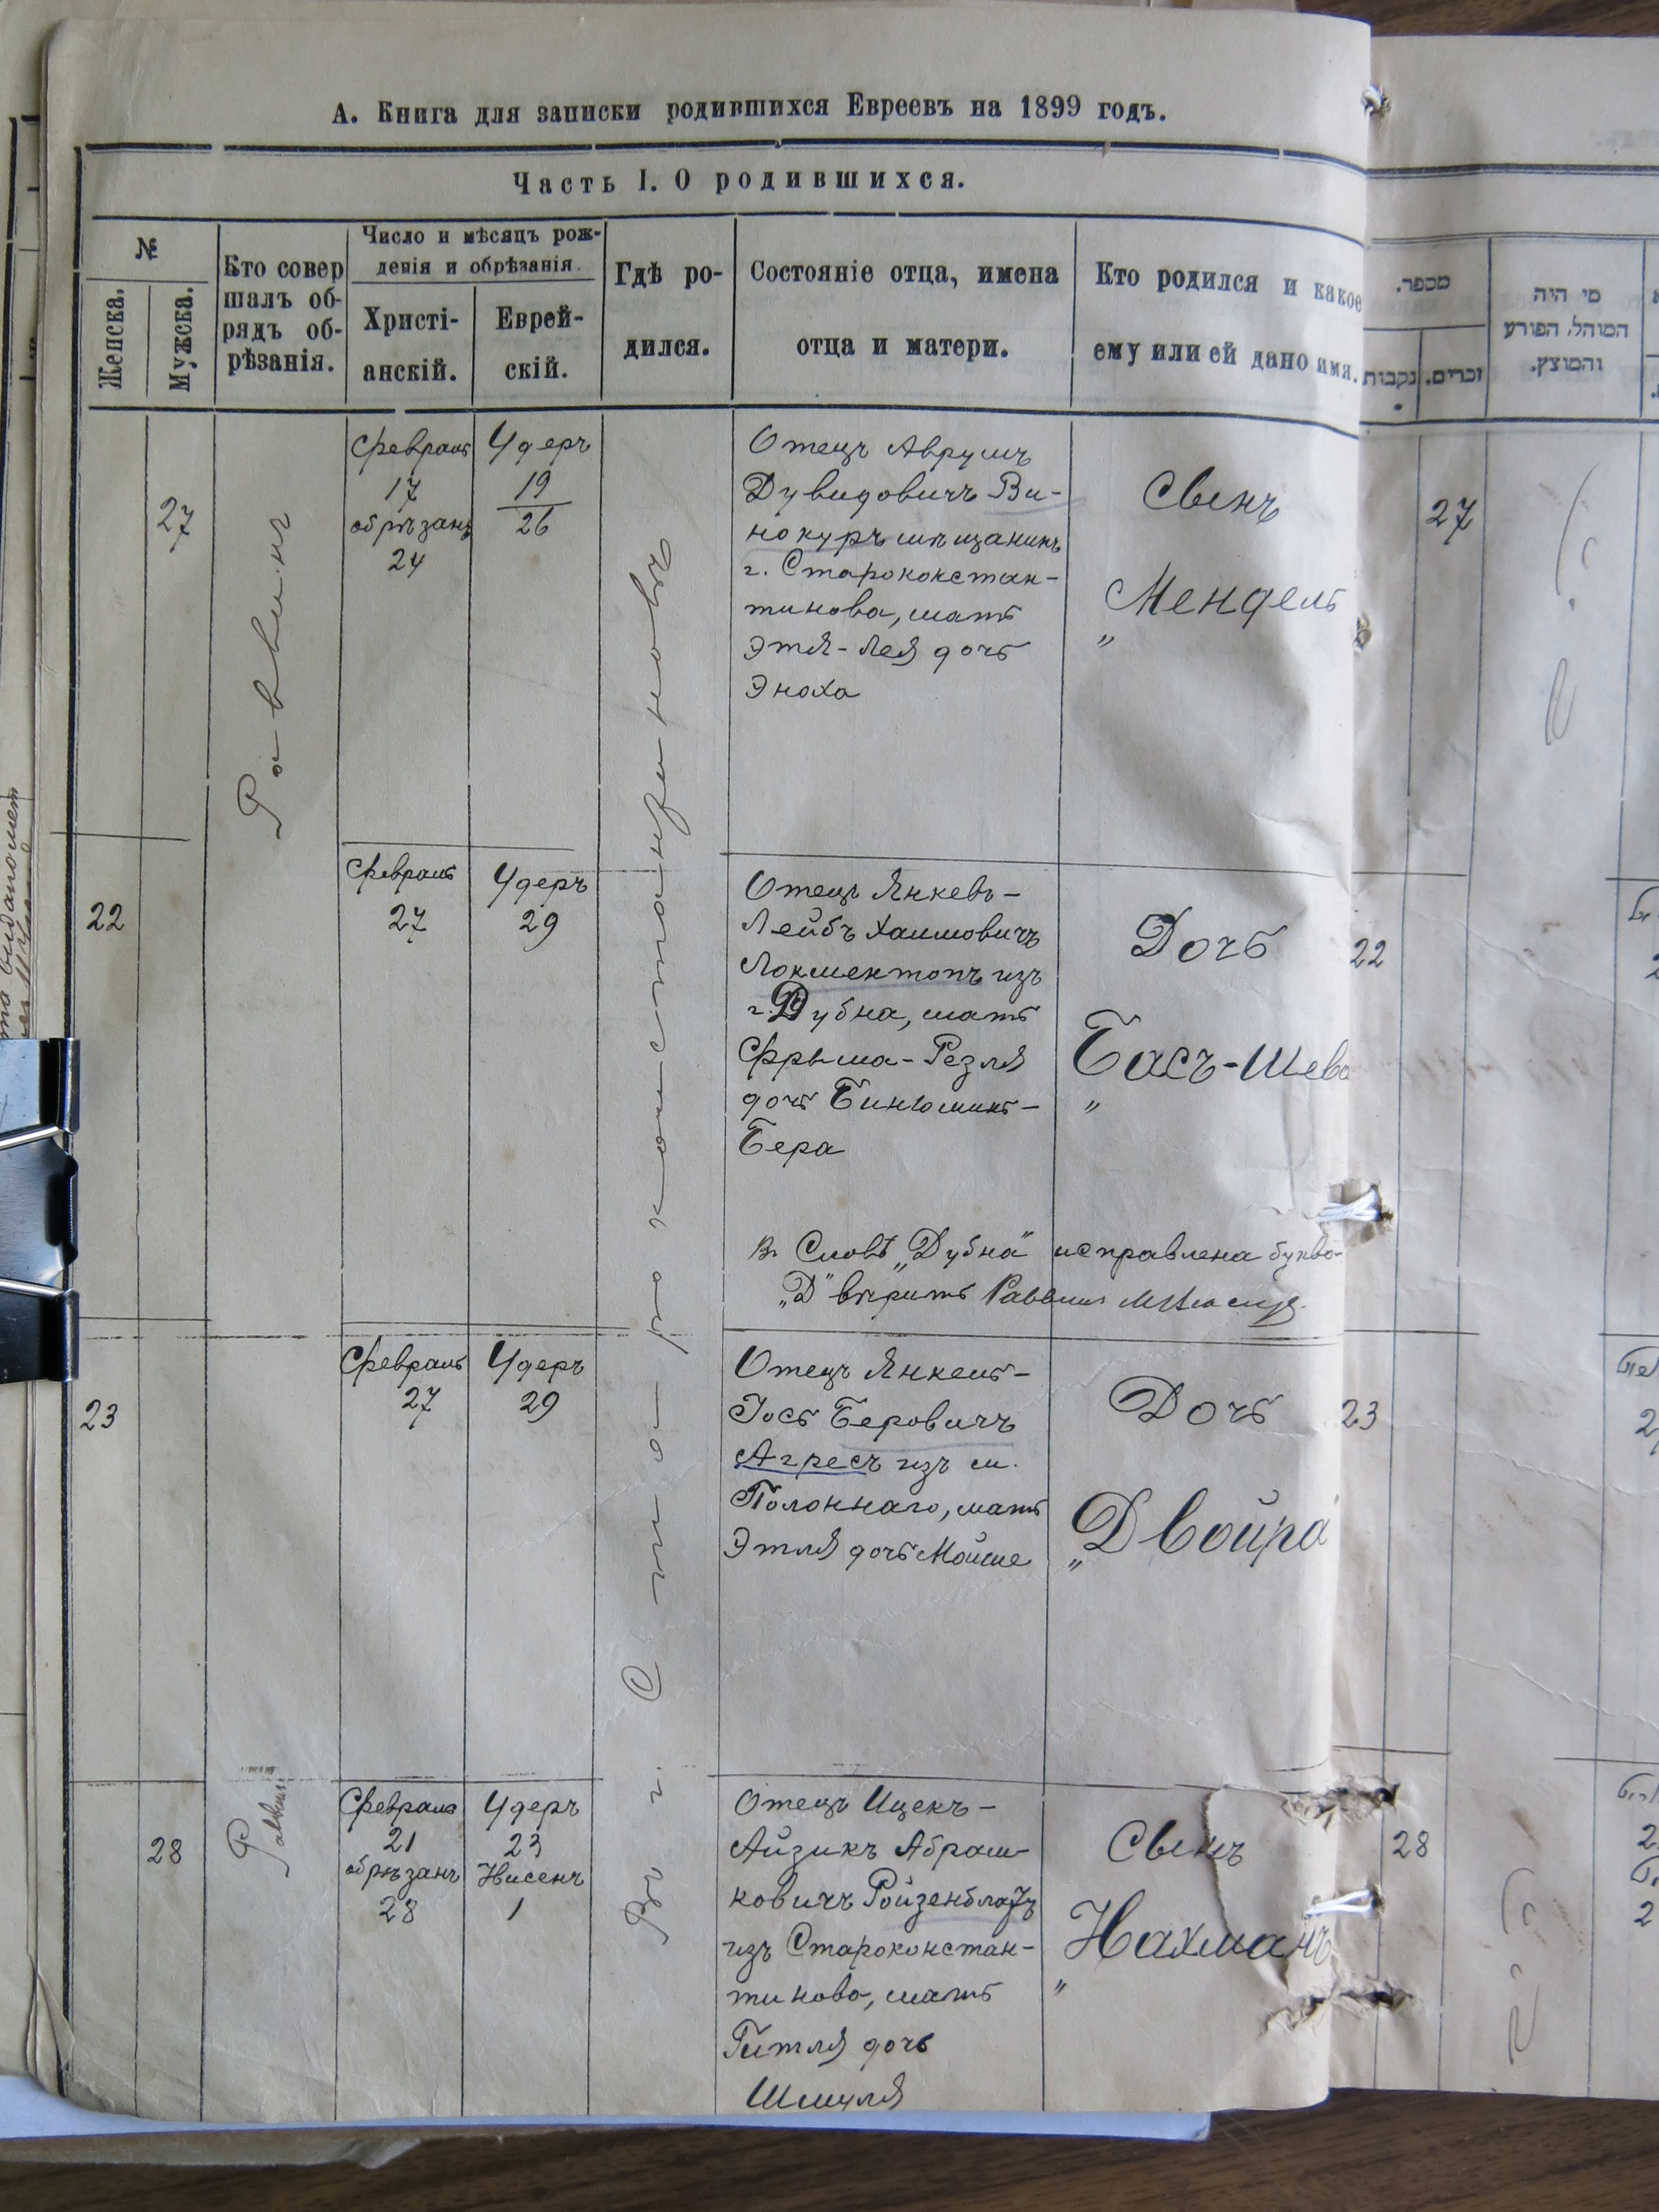 А. Книга для записки родившихся Евреевъ на 1899 годъ.
Часть I. О родившихся.
№
Женска.
Мужска.
Кто совер
шалъ об-
рядъ об-
рѣзанія.
Число и мѣсяцъ рож-
денія и обрѣзанія.
Христі-
анскій.
Еврей-
скій.
Гдѣ ро-
дился.
Состояніе отца, имена
отца и матери.
Кто родился и какое
ему или ей дано имя.
מספר.
נקבות
זכרים.
מי היה
המוהל, הפורע
והמוצץ.
27
Раввинъ
Февраль
17
обрѣзанъ
24
Адеръ
19
26
Въ г. Староконстантиновъ
Отецъ Аврумъ
Дувидовичъ Ви-
нокуръ мѣщанинъ
г. Староконстан-
тинова, мать
Этя-Лея дочь
Эноха
Сынъ
„Мендель
27
22
Февраль
27
Адеръ
29
Отецъ Янкевъ-
Лейбъ Хаимовичъ
Локментопъ изъ
г. Дубна, мать
Фрыма-Резля
дочь Биньоминъ-
Бера
Дочь
„Басъ-Шева
22
въ Словѣ „Дубна" исправлена буква
„Д" вѣрить Раввинъ
23
Февраль
27
Адеръ
29
Отецъ Янкель-
Іось Беровичъ
Агресъ изъ м.
Полоннаго, мать
Этля дочь Мойше
Дочь
„Двойра
23
28
Раввинъ
Февраль
21
обрѣзанъ
28
Адеръ
23
Нисенъ
1
Отецъ Ицекъ-
Айзикъ Абраш-
ковичъ Ройзенблатъ
изъ Староконстан-
тинова, мать
Гитля дочь
Шмуля
Сынъ
„Нахманъ
28